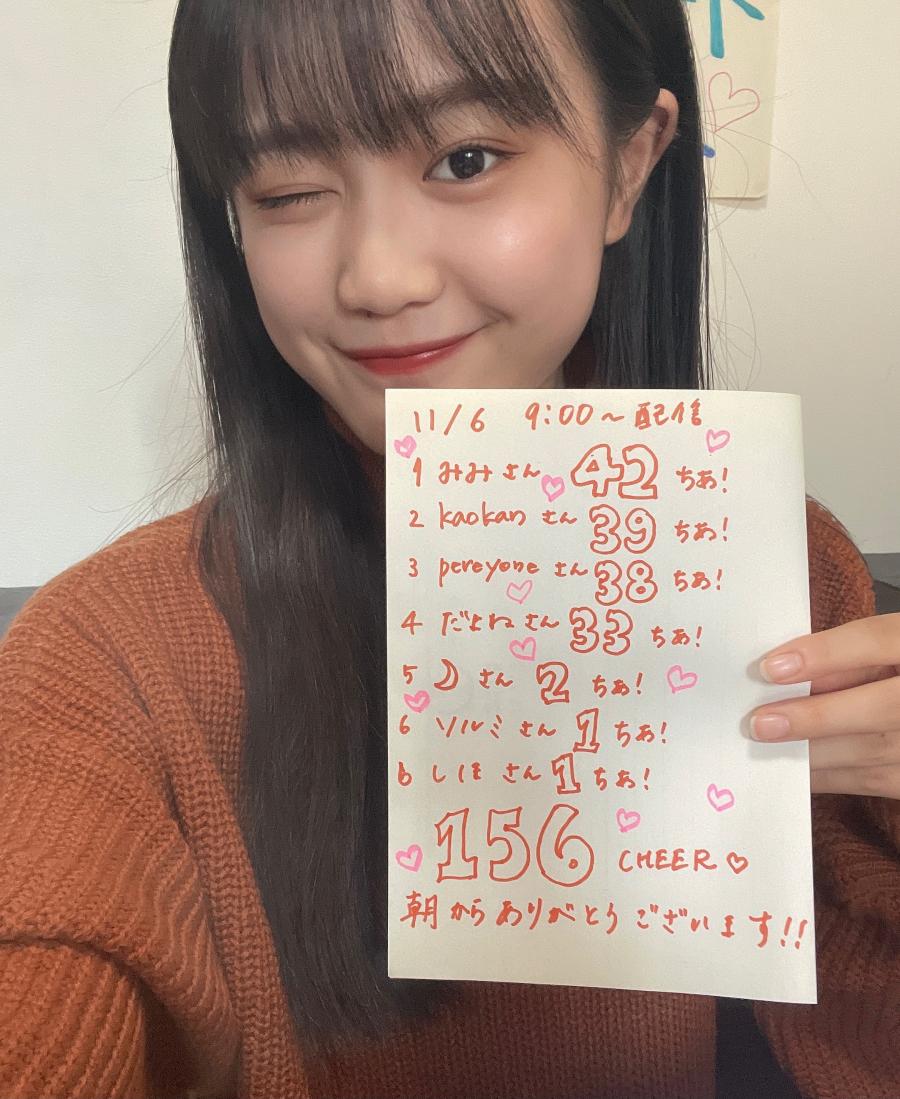 11/6 9:00～配信
1 みみさん 42 ちあ!
2 kaokan さん 39 ちあ!
3 pereyone さん 38 ちあ!
4 だよねさん 33 ちあ!
5 ☽ さん 2 ちあ!
6 ソルミさん 1 ちあ!
6 しほさん 1 ちあ!
156 CHEER♡
朝からありがとうございます!!